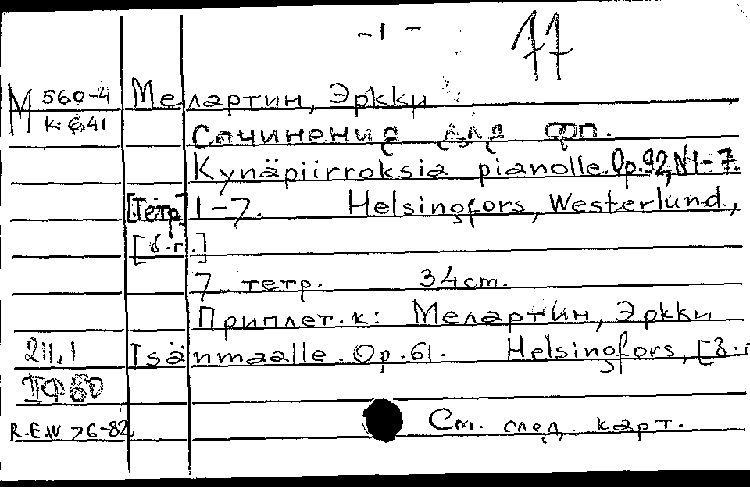 - 1 -
77
М 560-4 Мелартин, Эркки
к 641
Сочинения для фп.
Kynäpiirroksia pianolle. Op. 92, N 1-7.
[Тетр] 1-7. Helsingfors, Westerlund,
[б.г.]
7 тетр. 34cm.
Приплет. к: Мелартин, Эркки
211.1 Isänmaalle. Op. 61. Helsingfors, [б.г
См. след. карт.